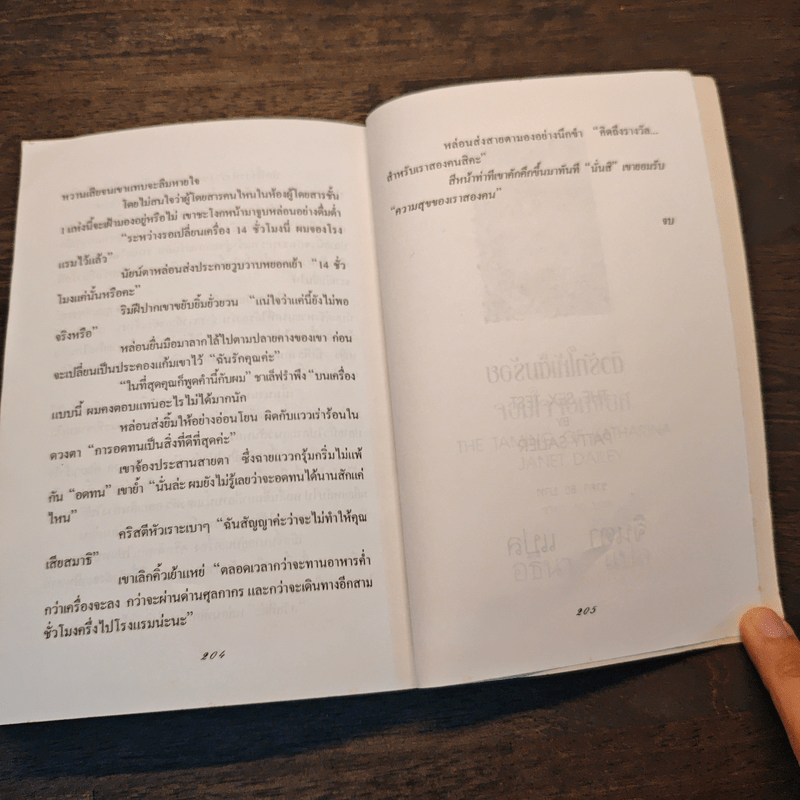 หวานเสียจนเขาแทบจะลืมหายใจ
โดยไม่สนใจว่าผู้โดยสารคนไหนในห้องผู้โดยสารชั้น
1 แห่งนี้จะเฝ้ามองอยู่หรือไม่ เขาชะโงกหน้ามาจูบหล่อนอย่างดื่มด่ำ
“ระหว่างรอเปลี่ยนเครื่อง 14 ชั่วโมงนี่ ผมจองโรง
แรมไว้แล้ว”
นัยน์ตาหล่อนส่งประกายวูบวาบหยอกเย้า “14 ชั่ว
โมงแค่นั้นหรือคะ”
ริมฝีปากเขาขยับยิ้มยั่วยวน “แน่ใจว่าแค่นี้ยังไม่พอ
จริงหรือ”
หล่อนยื่นมือมาลากไล้ไปตามปลายคางของเขา ก่อน
จะเปลี่ยนเป็นประคองแก้มเขาไว้ “ฉันรักคุณค่ะ”
“ในที่สุดคุณก็พูดคำนี้กับผม” ชาเล็ฟรำพึง “บนเครื่อง
แบบนี้ ผมคงตอบแทนอะไรไม่ได้มากนัก
หล่อนส่งยิ้มให้อย่างอ่อนโยน ผิดกับแววเร่าร้อนใน
ดวงตา “การอดทนเป็นสิ่งที่ดีที่สุดค่ะ”
เขาจ้องประสานสายตา ซึ่งฉายแววกรุ้มกริ่มไม่แพ้
กัน “อดทน” เขาย้ำ “นั่นล่ะ ผมยังไม่รู้เลยว่าจะอดทนได้นานสักแค่
ไหน”
คริสตีหัวเราะเบาๆ “ฉันสัญญาค่ะว่าจะไม่ทำให้คุณ
เสียสมาธิ”
เขาเลิกคิ้วเย้าแหย่ “ตลอดเวลากว่าจะทานอาหารค่ำ
กว่าเครื่องจะลง กว่าจะผ่านด่านศุลกากร และกว่าจะเดินทางอีกสาม
ชั่วโมงครึ่งไปโรงแรมน่ะนะ”
204
หล่อนส่งสายตามองอย่างนึกขำ “คิดถึงรางวัล...
สำหรับเราสองคนสิคะ”
สีหน้าท่าทีเขาคักคึกขึ้นมาทันที “นั่นสี” เขายอมรับ
“ความสุขของเราสองคน”
จบ
205